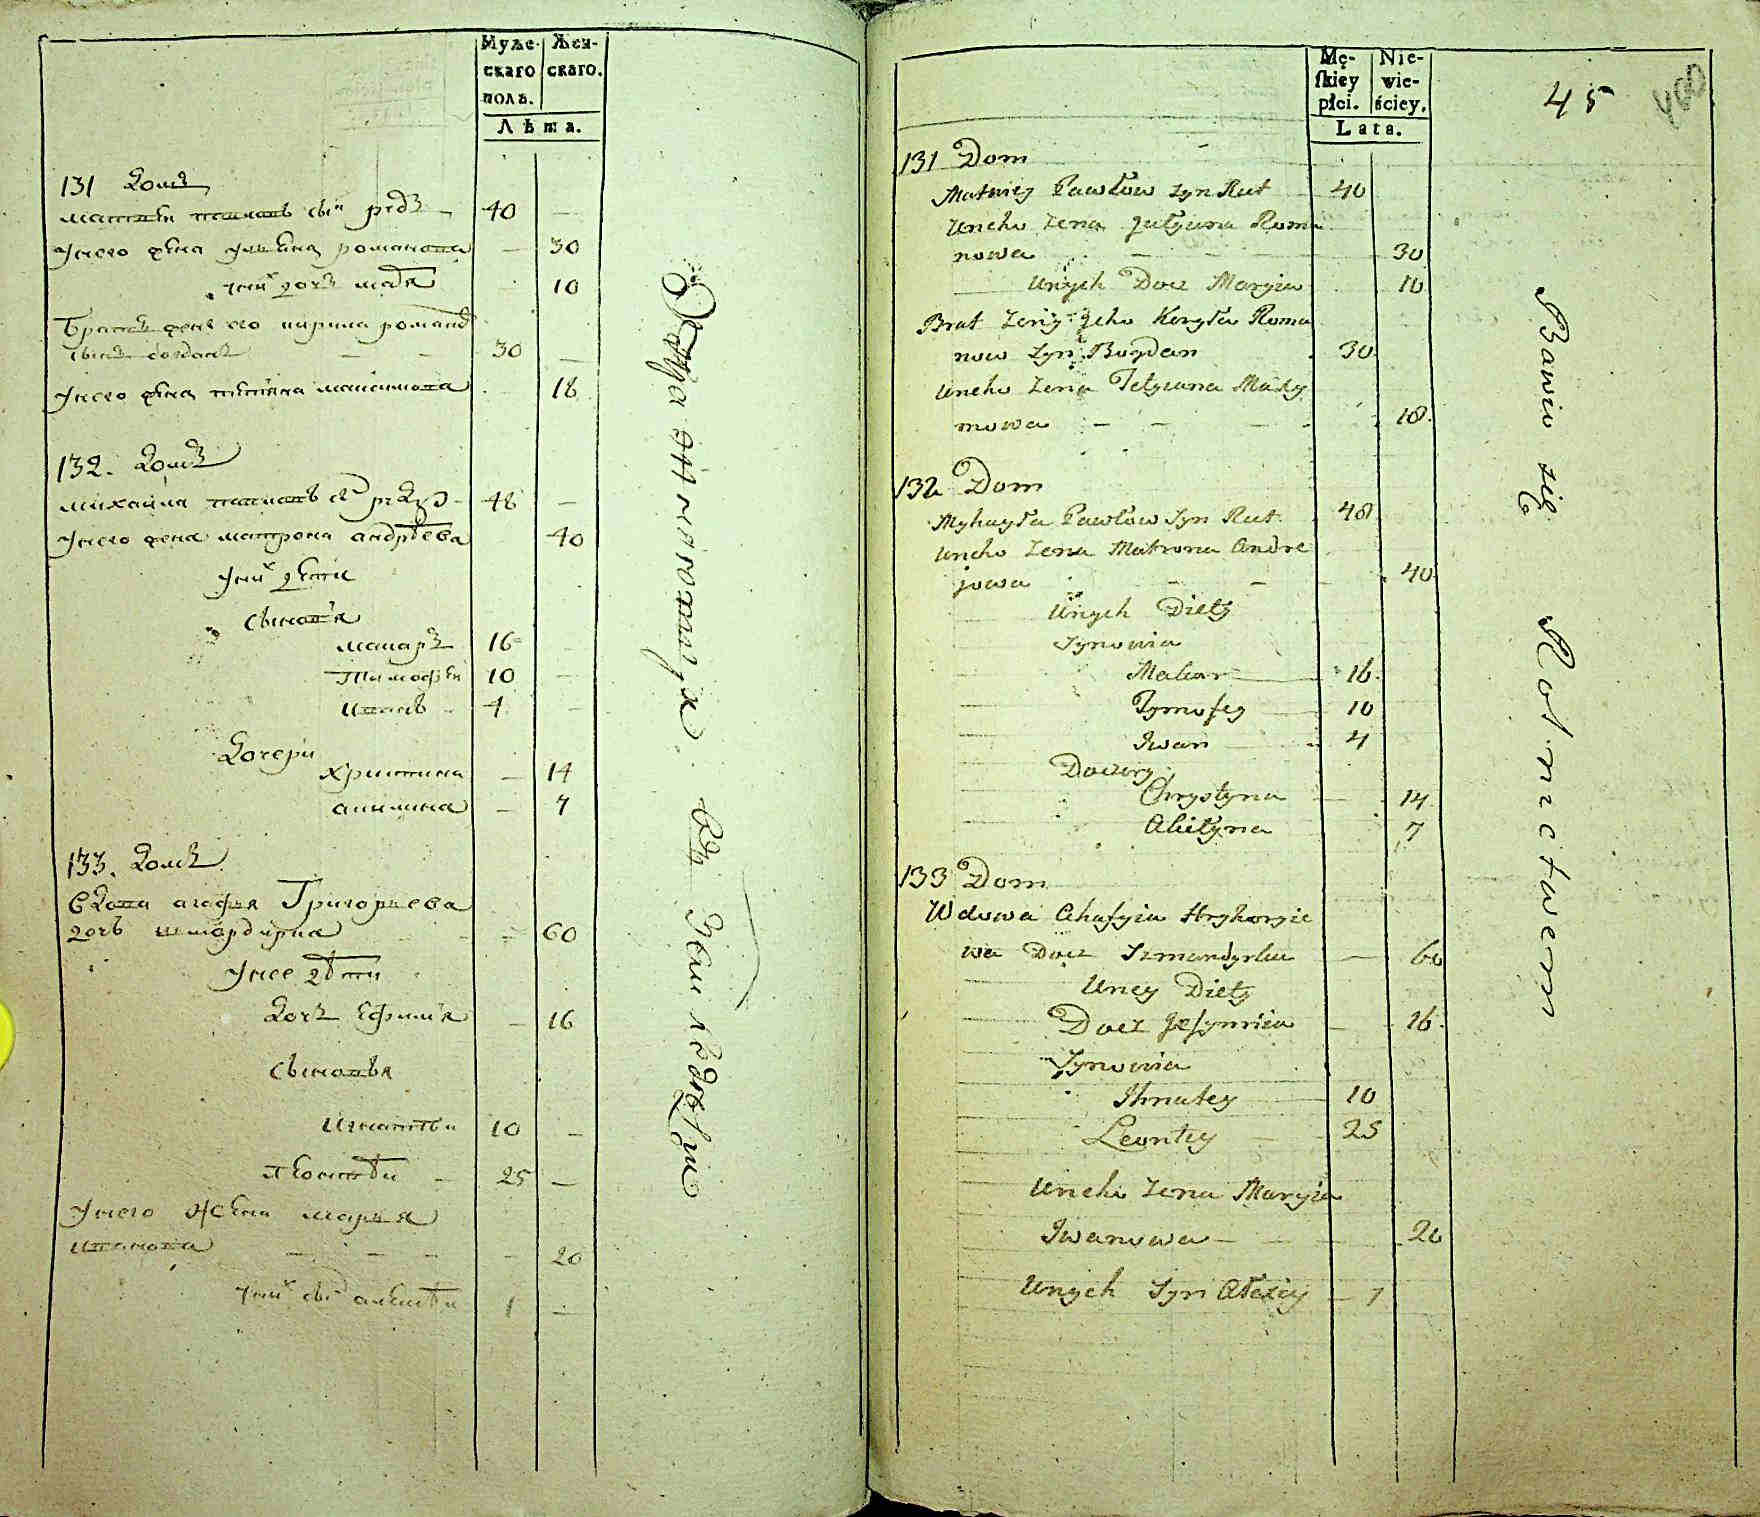 Муже- Жен-
скаго скаго.
полъ.
Лѣта.
131 Домъ
матвѣй павловъ сын редъ 40 —
у него жена ульяна романова — 30
у них дочь марья 10
Братъ жены его кирила романовъ
сынъ богданъ — — 30 —
у него жена татьяна максимова 18
132. Домъ
михайла павловъ сын 48 —
у него жена матрона андрѣева 40
у них дѣти
сыновья
макаръ 16 —
Тимофѣй 10 —
иванъ 4 —
Дочери
христина — 14
акилина — 7
133. Домъ
вдова агафья Григорьева
дочь — 60
у нее дѣти
дочь Ефимья — 16
сыновья
игнатѣй 10 —
леонтѣй — 25 —
у него жена марья
иванова — — — — 20
у них сын алексѣй 1 —
Mę- Nie-
skiey wie-
płci. ściey.
Lata.
45
131 Dom
Matwiey Pawłow Syn Rut 40
Uneho Zena Jułyana Roma
nowa — — — 30
Unych Docz Maryia 10
Brat Zeny Jeho Keryła Roma
now Syn Bogdan 30
Uneho Zena Tetyana Maxy
mowa — — — 18
132 Dom
Myhayła Pawłow Syn Rut 48
Uneho Zena Matrona Andre
jowa — — 40
Unych Diety
Synowia
Makar 16
Tymofey 10
Iwan 4
Doczery
Chrystyna 14
Akiłyna 7
133 Dom
Wdowa Ahafyia Hryhoryie
wa Docz Szmandyrka — 60
Uney Diety
Docz Jefymia — 16
Synowia
Ihnatey 10
Leontey — 25
Uneho Zena Maryia
Iwanowa — 20
Unych Syn Ałexiy — 1
Bawio się Rolnictwem